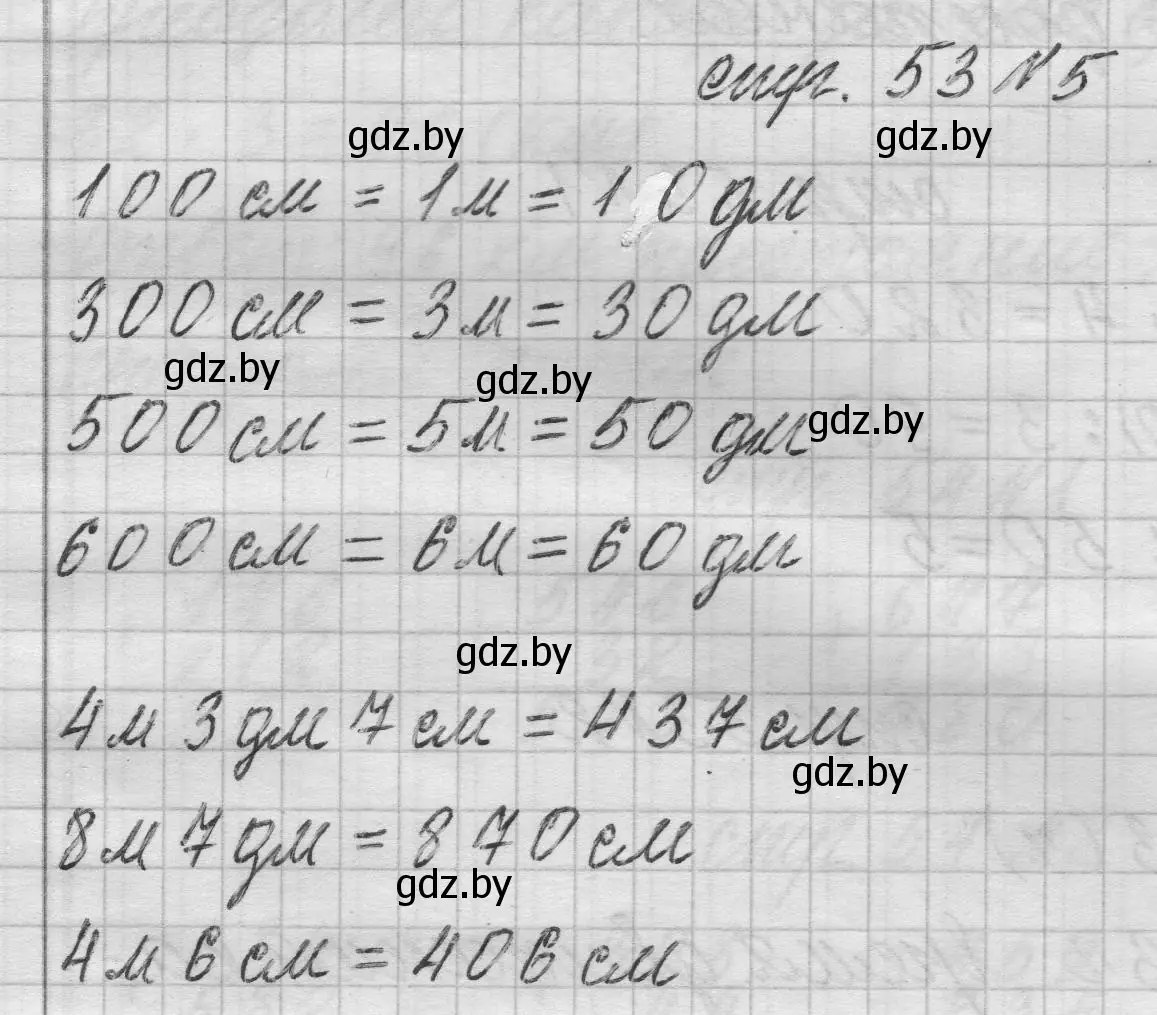 стр. 53 №5
gdz.by gdz.by
100 см = 1 м = 10 дм
300 см = 3 м = 30 дм
gdz.by gdz.by
500 см = 5 м = 50 дм gdz.by
600 см = 6 м = 60 дм
gdz.by
4 м 3 дм 7 см = 437 см
gdz.by
8 м 7 дм = 870 см
gdz.by
4 м 6 см = 406 см